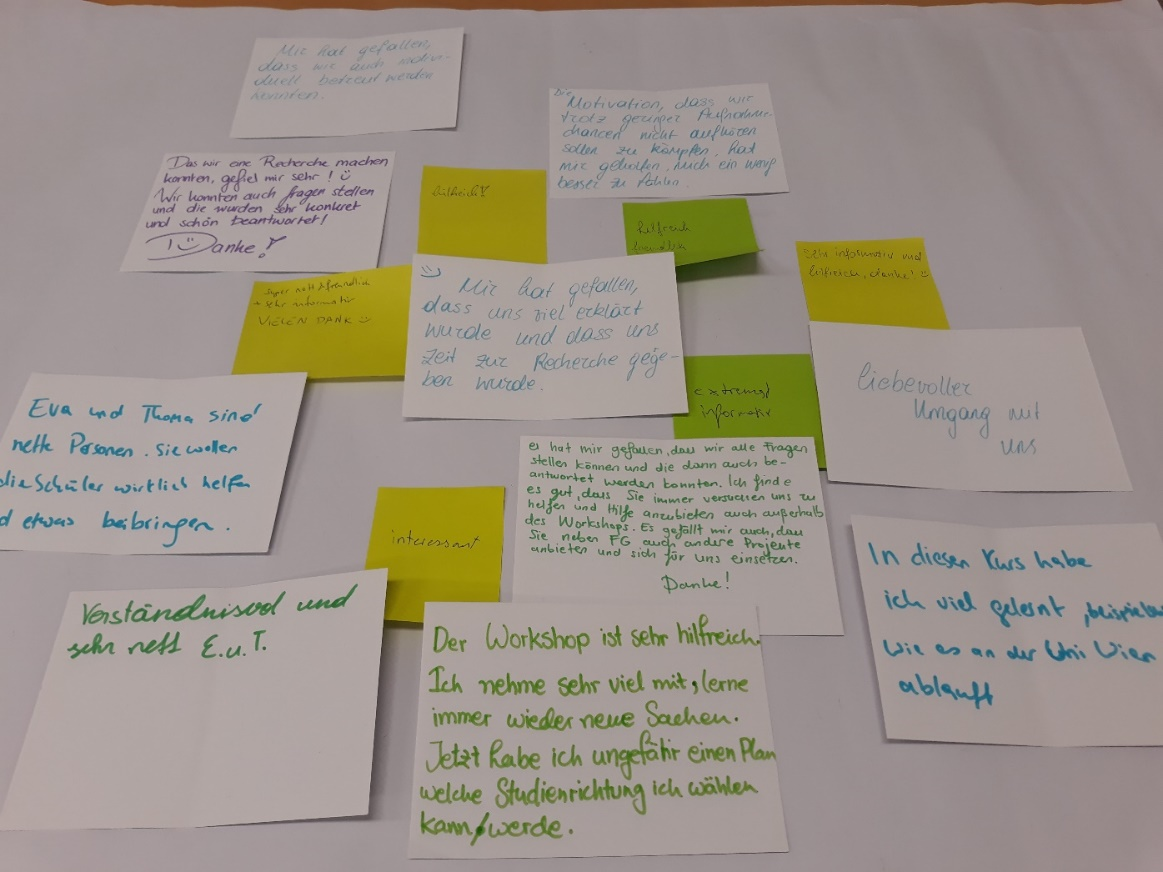 Mir hat gefallen,
dass wir auch indivi-
duell betreut werden
konnten.
Die
Motivation, dass wir
trotz geringer Aufnahme-
chancen nicht aufhören
sollen zu kämpfen, hat
mir geholfen, mich ein wenig
besser zu fühlen.
Das wir eine Recherche machen
konnten, gefiel mir sehr! ☺
Wir konnten auch fragen stellen
und die wurden sehr konkret
und schön beantwortet!
Danke!
hilfreich!
hilfreich
Sehr informativ und
hilfreich, danke! ☺
super nett & freundlich
+ sehr informativ
VIELEN DANK ☺
☺ Mir hat gefallen,
dass uns viel erklärt
wurde und dass uns
Zeit zur Recherche gege-
ben wurde.
extrem
informativ
liebevoller
Umgang mit
uns
Eva und Thoma sind
nette Personen. Sie wollen
die Schüler wirklich helfen
d etwas beibringen.
es hat mir gefallen, das wir alle Fragen
stellen können und die dann auch be-
antwortet werden konnten. Ich finde
es gut, dass Sie immer versuchen uns zu
helfen und Hilfe anzubieten auch außerhalb
des Workshops. Es gefällt mir auch, dass
Sie neben FG auch andere Projekte
anbieten und sich für uns einsetzen.
Danke!
interessant
In diesen Kurs habe
ich viel gelernt, beispielsw
wie es an der Uni Wien
abläuft
Verständnisvol und
sehr nett E.u.T.
Der Workshop ist sehr hilfreich.
Ich nehme sehr viel mit, lerne
immer wieder neue Sachen.
Jetzt habe ich ungefähr einen Plan
welche Studienrichtung ich wählen
kann/werde.